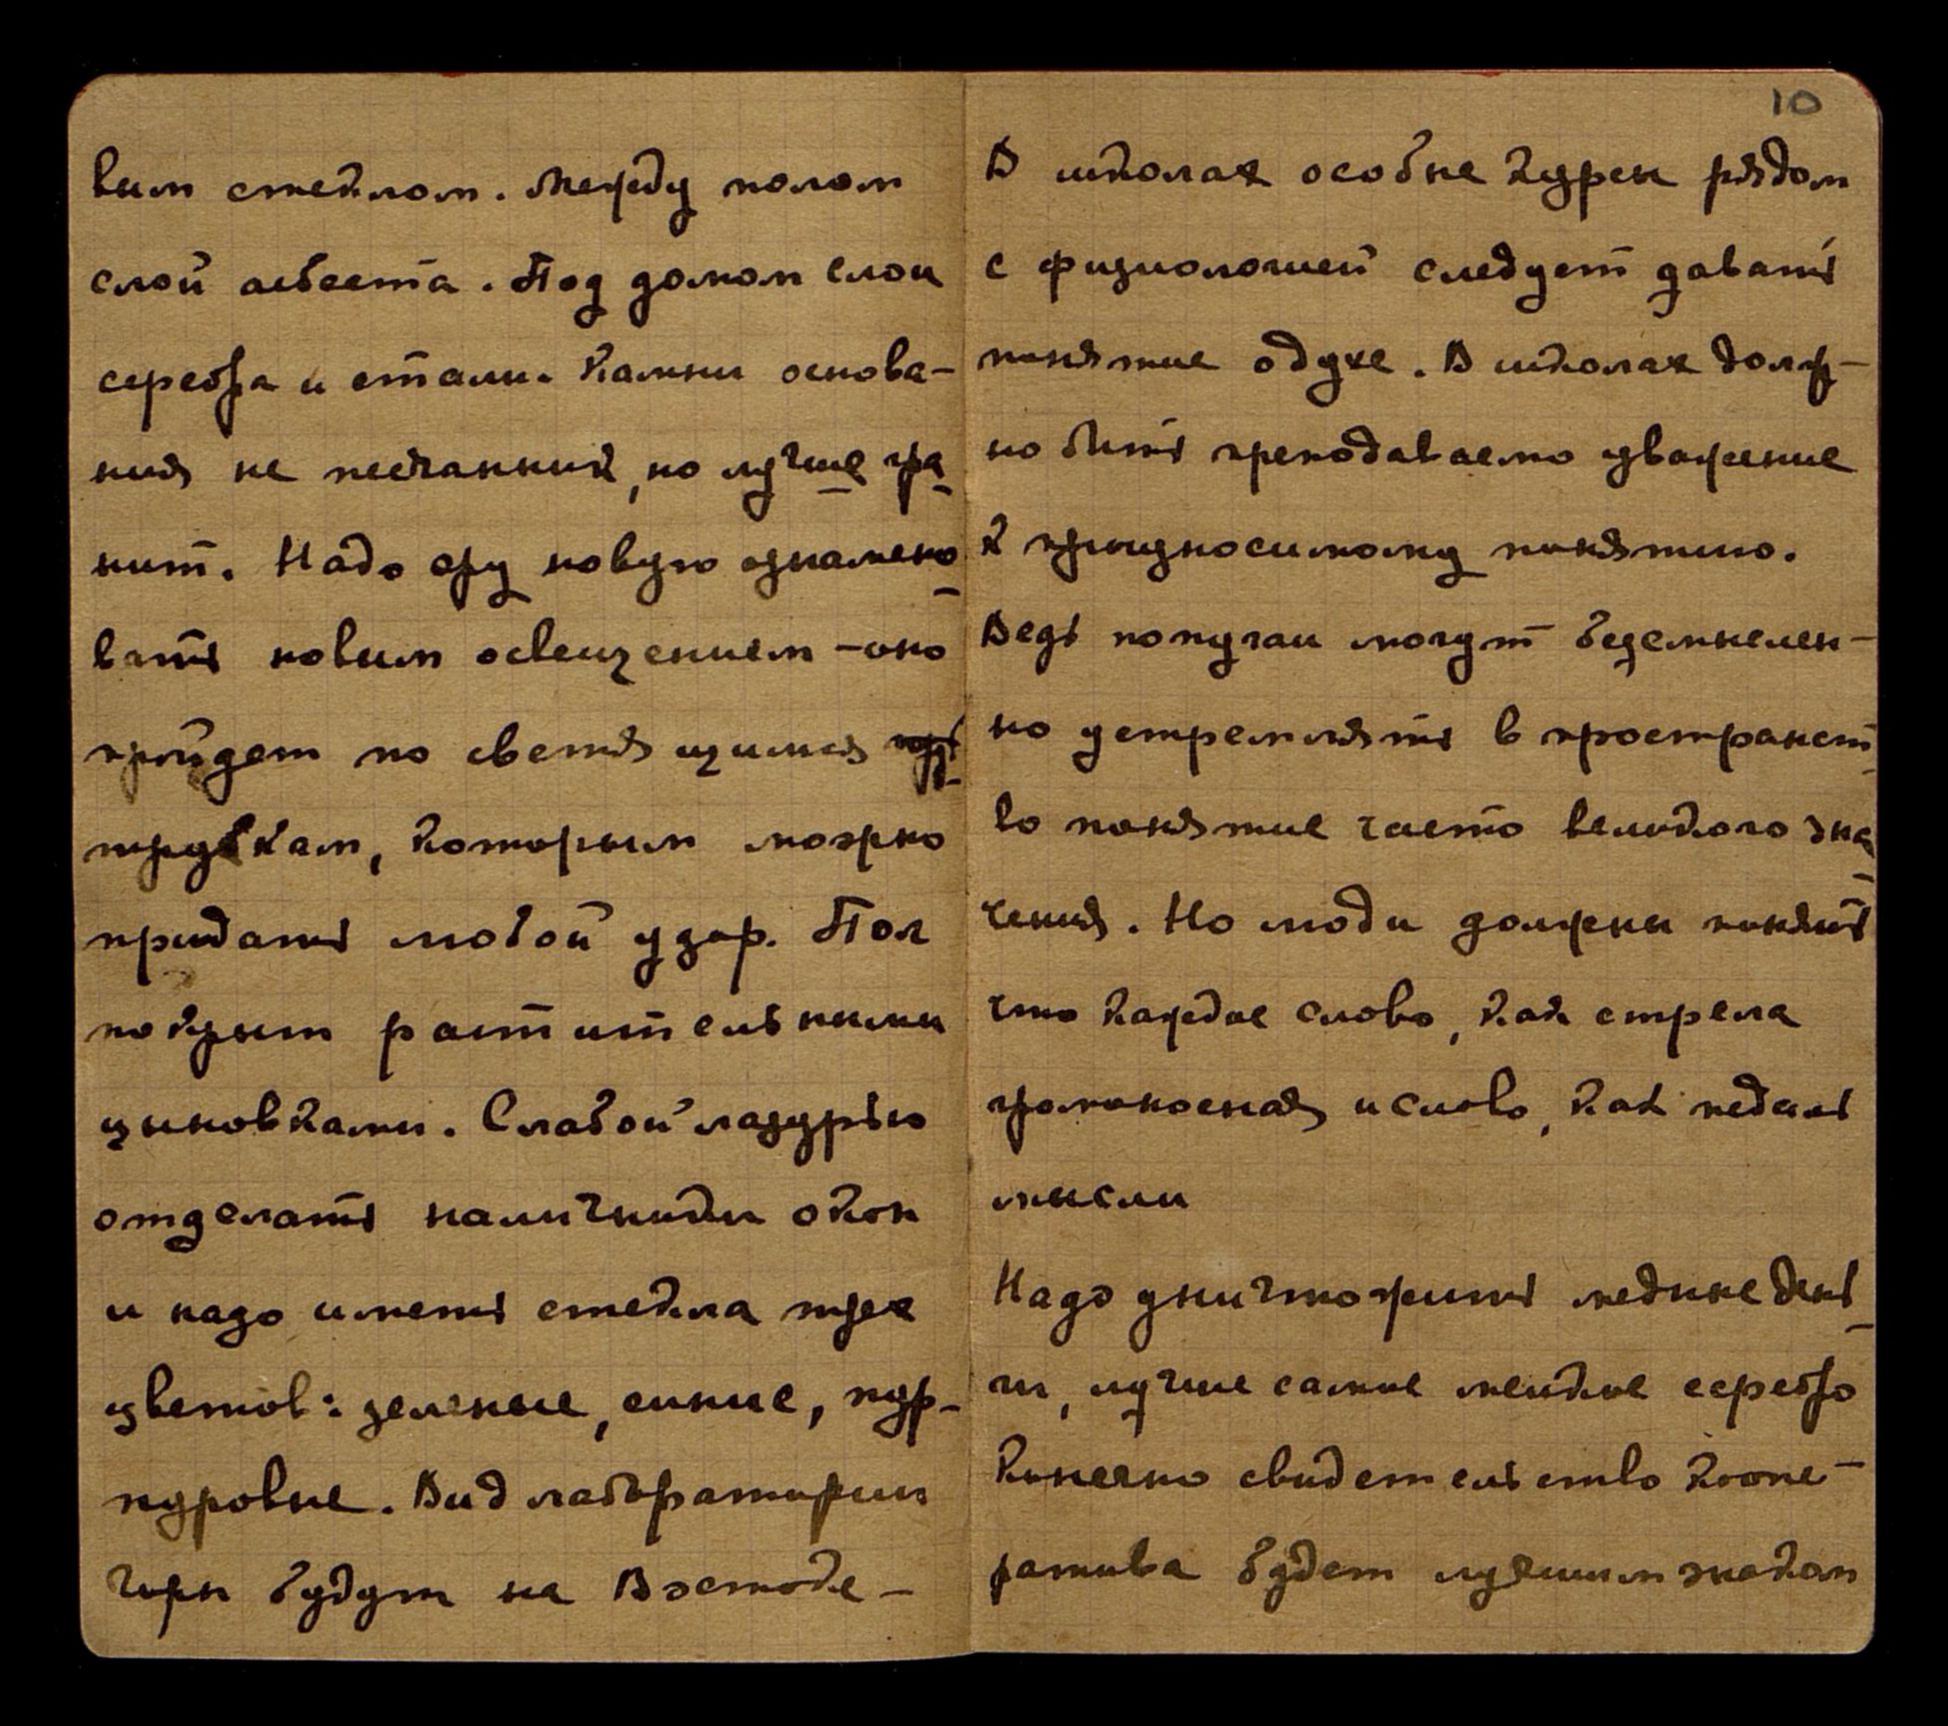 вым стеклом. Между полом
слой асбеста. Под домом слои
серебра и стали. Камни основа-
ния не песчанник, но лучше гра-
нит. Надо эру новую ознамено-
вать новым освещением – оно
пройдет по светящимся
трубкам, которым можно
придать любой узор. Пол
покрыт растительными
циновками. Слабой лазурью
отделать наличники окон
и надо иметь стекла трех
цветов: зеленые, синие, пур-
пуровые. Вид лаборатории
горы будут на Востоке –
10
В школах особые курсы рядом
с физиологией следует давать
понятие о духе. В школах долж-
но быть преподаваемо уважение
к произносимому понятию.
Ведь попугаи могут безсмыслен-
но устремлять в пространст-
во понятие часто великого зна-
чения. Но люди должны понять
что каждое слово, как стрела
громоносная и слово, как педаль
мысли
Надо уничтожить медные день-
ги, лучше самое мелкое серебро
Конечно свидетельство коопе-
ратива будет лучшим знаком